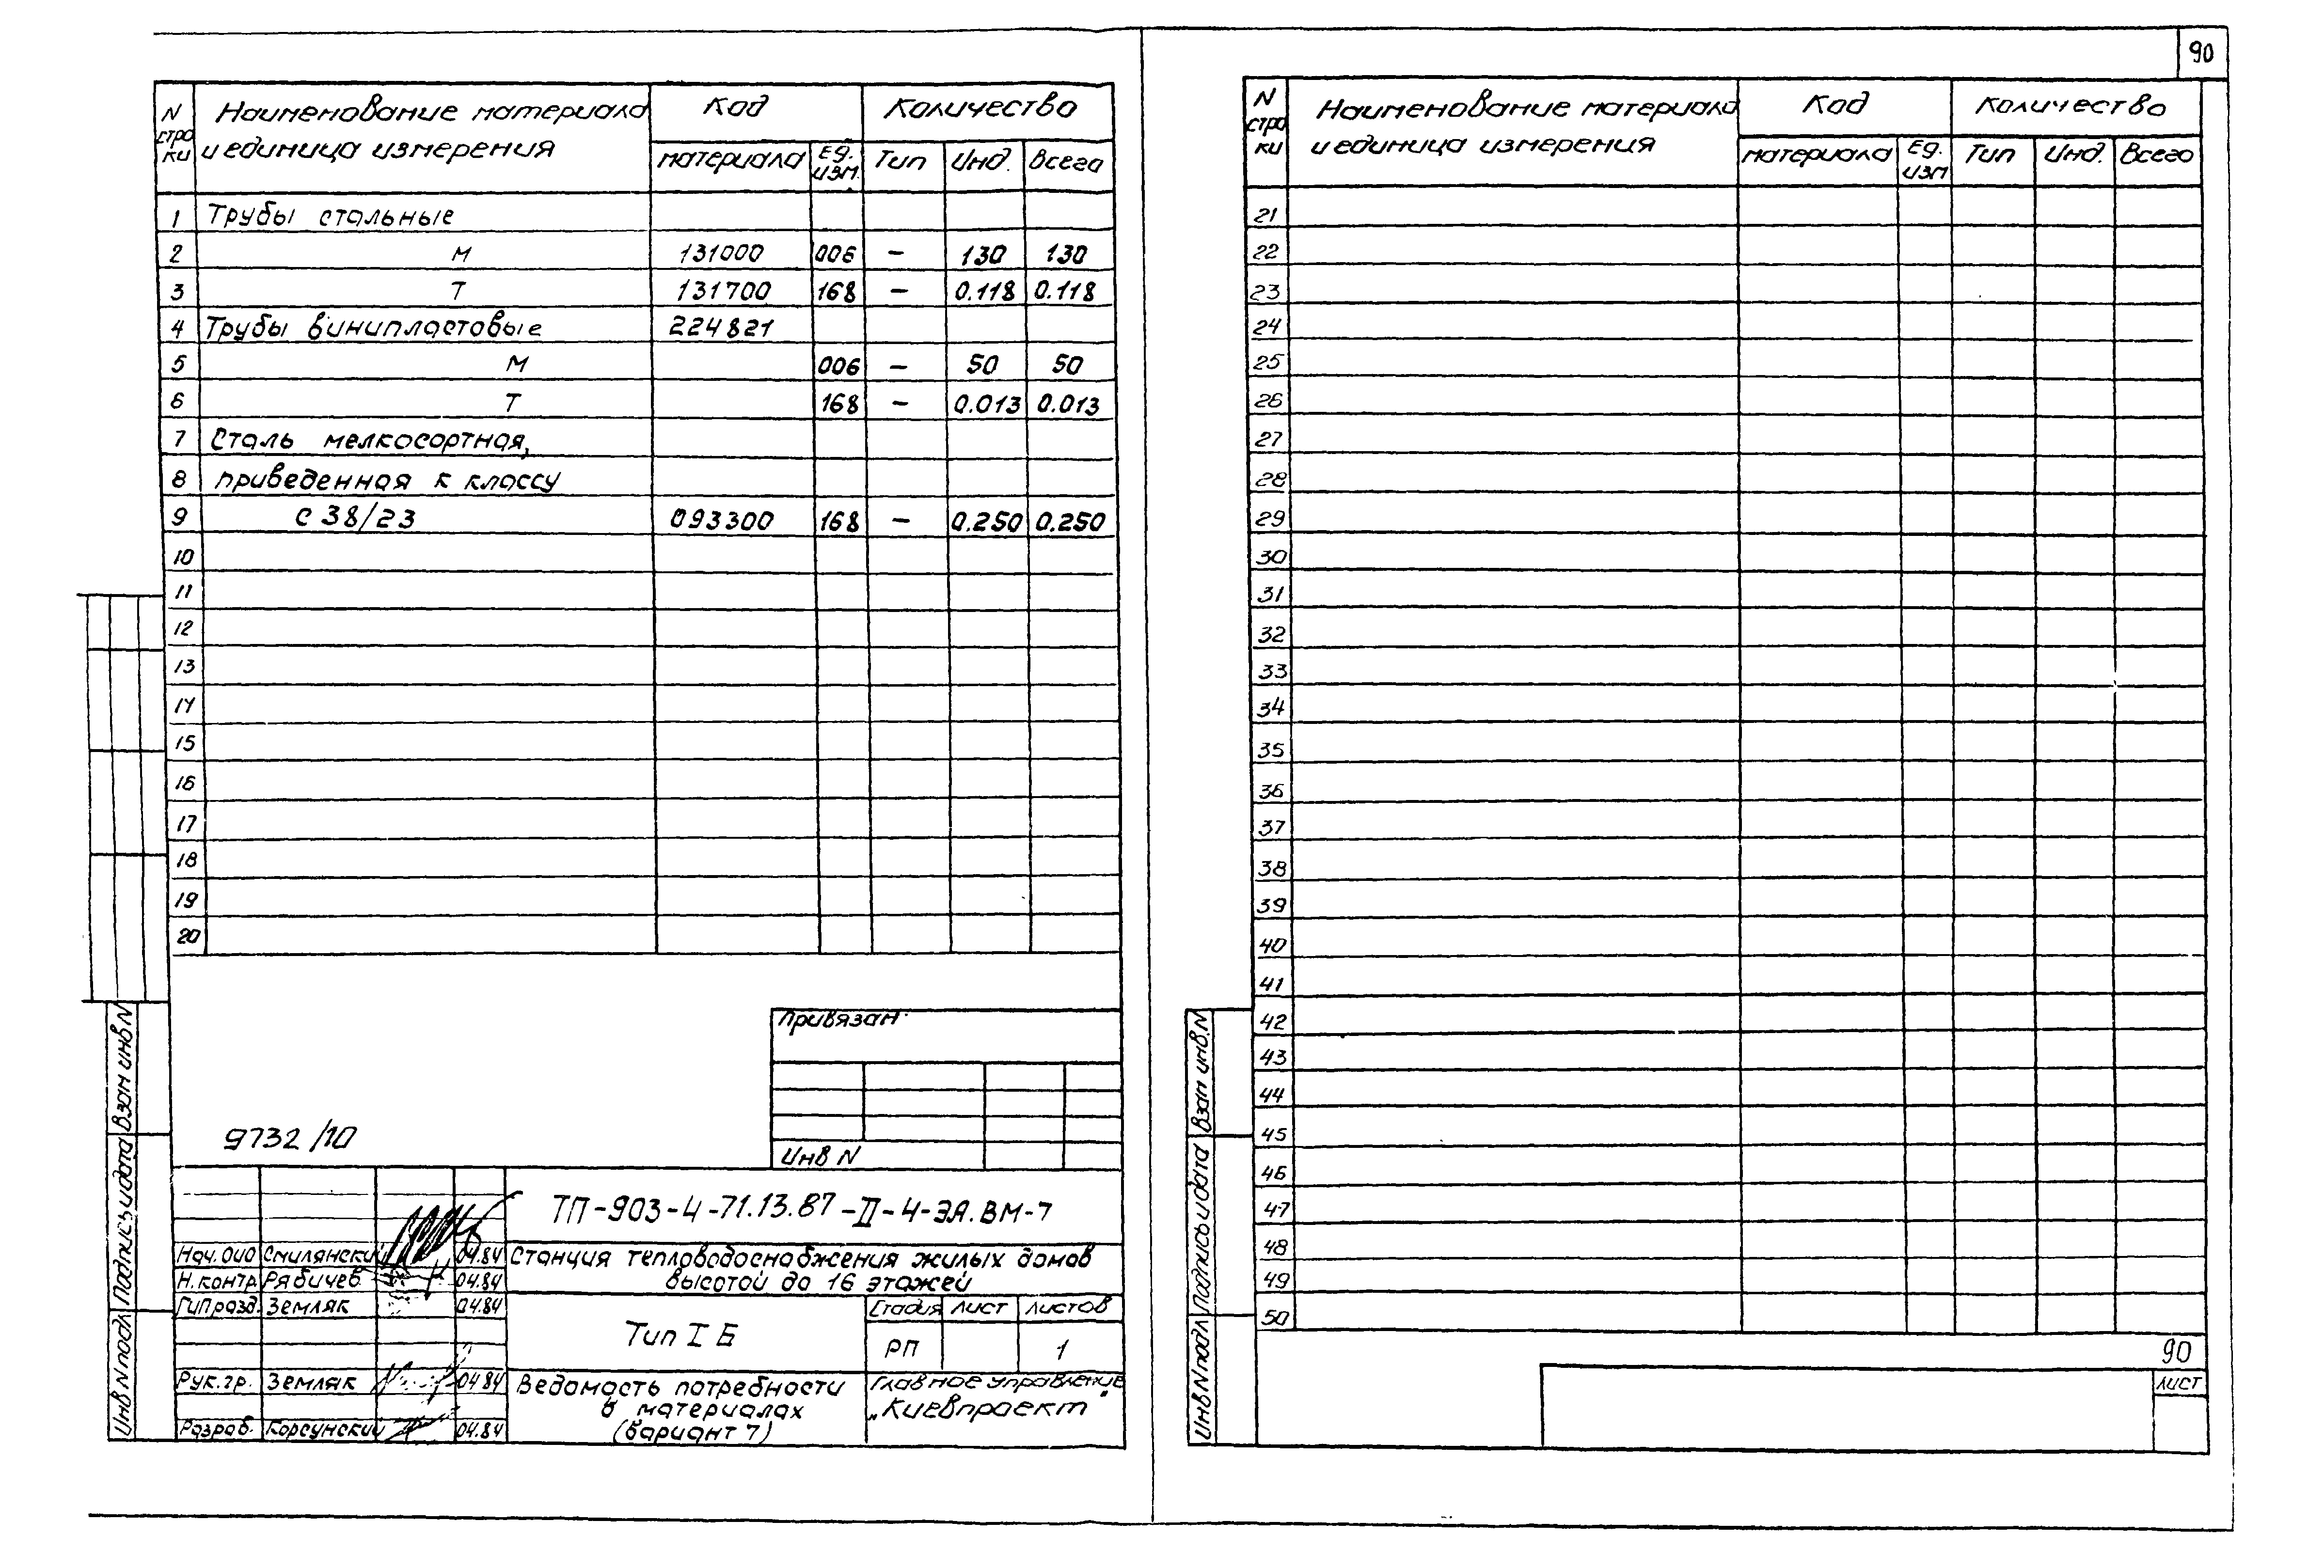 90
N строки Наименование материала и единица измерения Код Количество
материала Ед. изм. Тип Инд. Всего
1 Трубы стальные
2 М 131000 006 — 130 130
3 Т 131700 168 — 0.118 0.118
4 Трубы винипластовые 224821
5 М 006 — 50 50
6 Т 168 — 0.013 0.013
7 Сталь мелкосортная,
8 приведенная к классу
9 С 38/23 093300 168 — 0.250 0.250
10
11
12
13
14
15
16
17
18
19
20
Привязан
Инв N
9732/10
ТП-903-4-71.13.87-II-4-ЭА.ВМ-7
Нач. ОИО Смилянский 04.84
Н. контр. Рябичев 04.84
ГИП разд. Земляк 04.84
Рук. гр. Земляк 04.84
Разраб. Корсунский 04.84
Станция тепловодоснабжения жилых домов
высотой до 16 этажей
Тип I Б
Стадия Лист Листов
РП 1
Ведомость потребности
в материалах
(вариант 7)
Главное управление
„Киевпроект"
Взам инв N
Подпись и дата
Инв N подл
N строки Наименование материала и единица измерения Код Количество
материала Ед. изм Тип Инд. Всего
21
22
23
24
25
26
27
28
29
30
31
32
33
34
35
36
37
38
39
40
41
42
43
44
45
46
47
48
49
50
Взам инв. N
Подпись и дата
Инв N подл
90
Лист